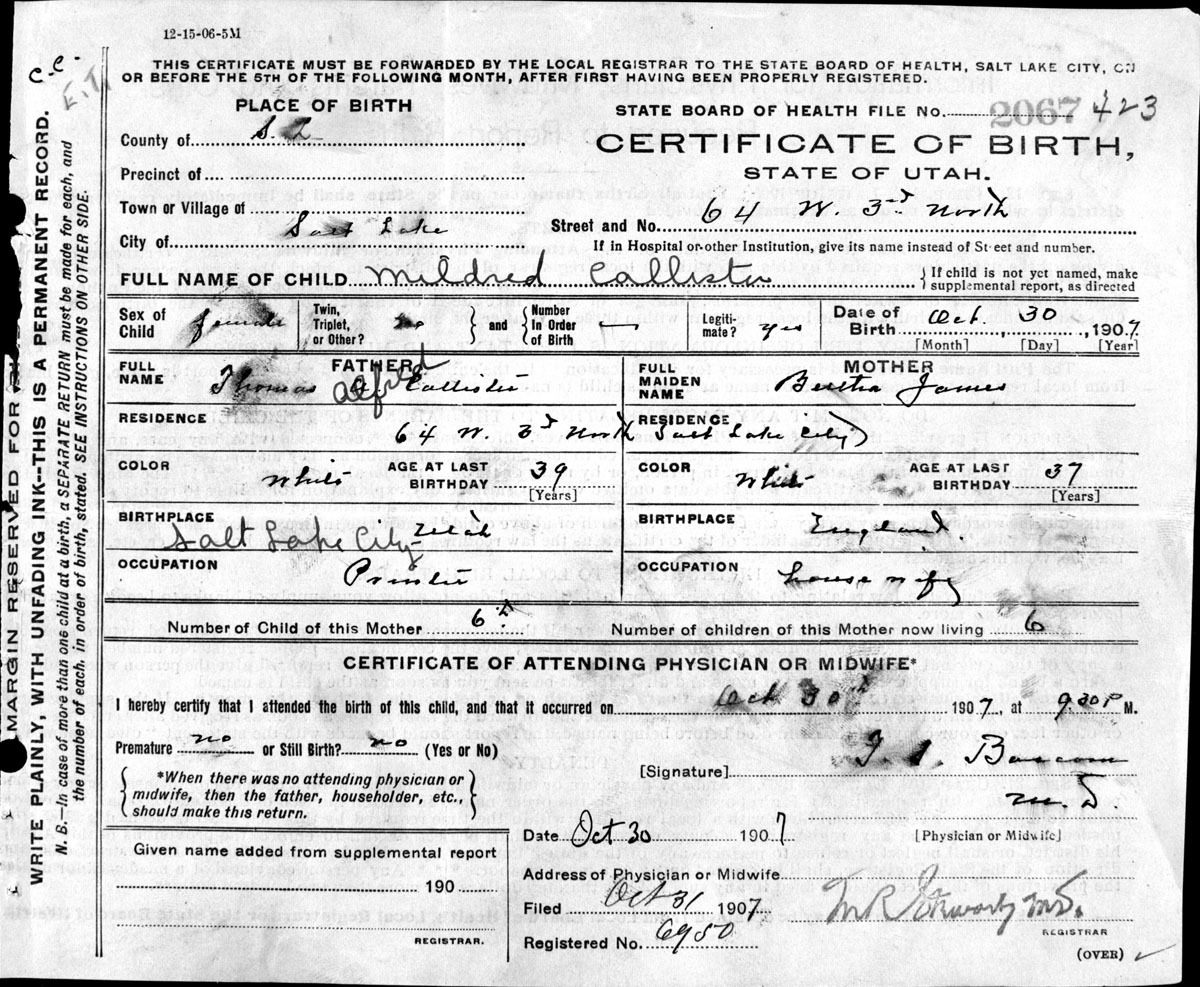 12-15-06-5M
THIS CERTIFICATE MUST BE FORWARDED BY THE LOCAL REGISTRAR TO THE STATE BOARD OF HEALTH, SALT LAKE CITY, ON
OR BEFORE THE 5TH OF THE FOLLOWING MONTH, AFTER FIRST HAVING BEEN PROPERLY REGISTERED.
C.C.
MARGIN RESERVED FOR
WRITE PLAINLY, WITH UNFADING INK--THIS IS A PERMANENT RECORD.
N. B.—In case of more than one child at a birth, a SEPARATE RETURN must be made for each, and
the number of each, in order of birth, stated. SEE INSTRUCTIONS ON OTHER SIDE.
PLACE OF BIRTH
STATE BOARD OF HEALTH FILE No. 2067 423
County of S. L
CERTIFICATE OF BIRTH,
STATE OF UTAH.
Precinct of
Town or Village of
Street and No. 64 W. 3rd North
City of Salt Lake
If in Hospital or other Institution, give its name instead of Street and number.
FULL NAME OF CHILD Mildred Callister
If child is not yet named, make
supplemental report, as directed
Sex of Child female Twin, Triplet, or Other? no and Number In Order of Birth Legiti- mate? yes Date of Birth Oct. 30, 1907
[Month] [Day] [Year]
FATHER
FULL NAME Thomas A. Callister
Alfred
MOTHER
FULL MAIDEN NAME Bertha James
RESIDENCE 64 W. 3rd North
RESIDENCE Salt Lake City
COLOR White AGE AT LAST BIRTHDAY 39 [Years]
COLOR White AGE AT LAST BIRTHDAY 37 [Years]
BIRTHPLACE Salt Lake City Utah
BIRTHPLACE
OCCUPATION Printer
OCCUPATION house wife
Number of Child of this Mother 6th
Number of children of this Mother now living 6
CERTIFICATE OF ATTENDING PHYSICIAN OR MIDWIFE*
I hereby certify that I attended the birth of this child, and that it occurred on Oct 30th 1907, at 9:30 P M.
Premature no or Still Birth? no (Yes or No)
*When there was no attending physician or
midwife, then the father, householder, etc.,
should make this return.
[Signature]
M. D.
Date Oct 30 1907 [Physician or Midwife]
Given name added from supplemental report
190
REGISTRAR.
Address of Physician or Midwife
Filed Oct 31 1907
M.D.
REGISTRAR
Registered No. 6950
(OVER)